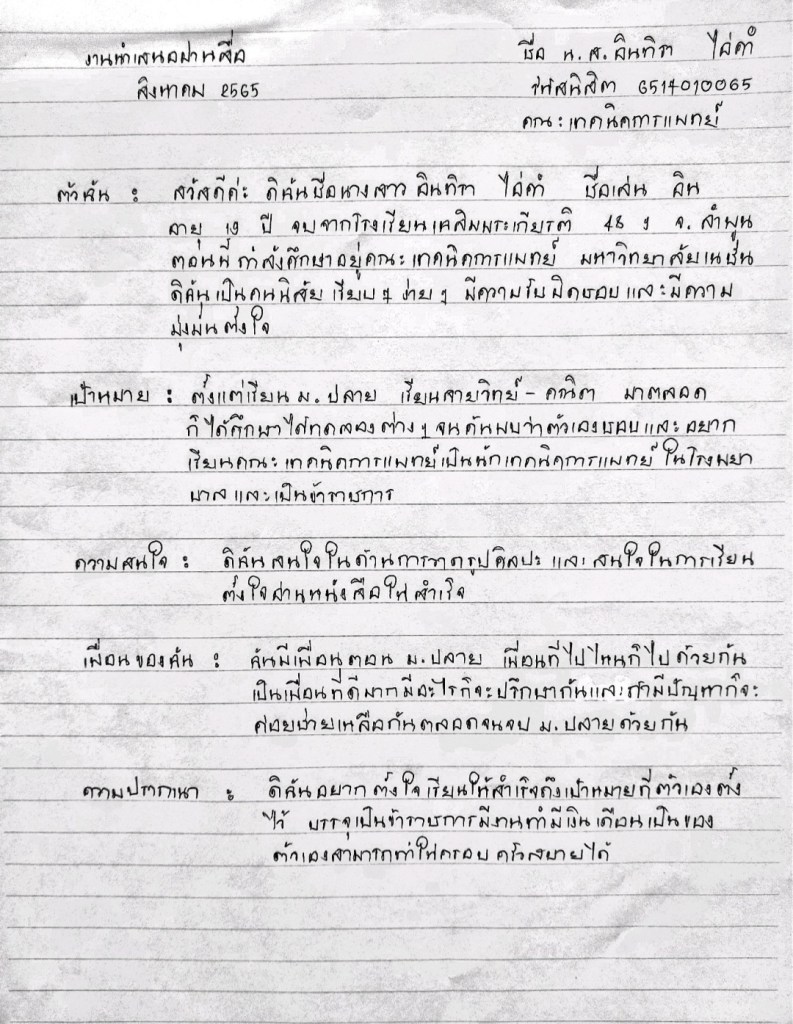 งานนำเสนอผ่านสื่อ
สิงหาคม 2565
ชื่อ น.ส.อินทิรา ไฝคำ
รหัสนิสิต 6514010065
คณะเทคนิคการแพทย์
ตัวฉัน : สวัสดีค่ะ ดิฉันชื่อนางสาว อินทิรา ไฝคำ ชื่อเล่น อิน
อายุ 19 ปี จบจากโรงเรียนเฉลิมพระเกียรติ 48 ฯ จ.ลำพูน
ตอนนี้กำลังศึกษาอยู่คณะเทคนิคการแพทย์ มหาวิทยาลัยเนชั่น
ดิฉันเป็นคนนิสัย เรียบๆ ง่ายๆ มีความรับผิดชอบและมีความ
มุ่งมั่นตั้งใจ
เป้าหมาย : ตั้งแต่เรียน ม.ปลาย เรียนสายวิทย์ - คณิต มาตลอด
ก็ได้ศึกษาได้ทดลองต่างๆ จนค้นพบว่าตัวเองชอบและอยาก
เรียนคณะเทคนิคการแพทย์เป็นนักเทคนิคการแพทย์ในโรงพยา
บาลและเป็นข้าราชการ
ความสนใจ : ดิฉันสนใจในด้านการวาดรูปศิลปะและสนใจในการเรียน
ตั้งใจอ่านหนังสือให้สำเร็จ
เพื่อนของฉัน : ฉันมีเพื่อนตอน ม.ปลาย เพื่อนที่ไปไหนก็ไปด้วยกัน
เป็นเพื่อนที่ดีมากมีอะไรก็จะปรึกษากันและถ้ามีปัญหาก็จะ
คอยช่วยเหลือกันตลอดจนจบ ม.ปลายด้วยกัน
ความปรารถนา : ดิฉันอยากตั้งใจเรียนให้สำเร็จถึงเป้าหมายที่ตัวเองตั้ง
ไว้ บรรจุเป็นข้าราชการมีงานทำมีเงินเดือนเป็นของ
ตัวเองสามารถทำให้ครอบครัวสบายได้